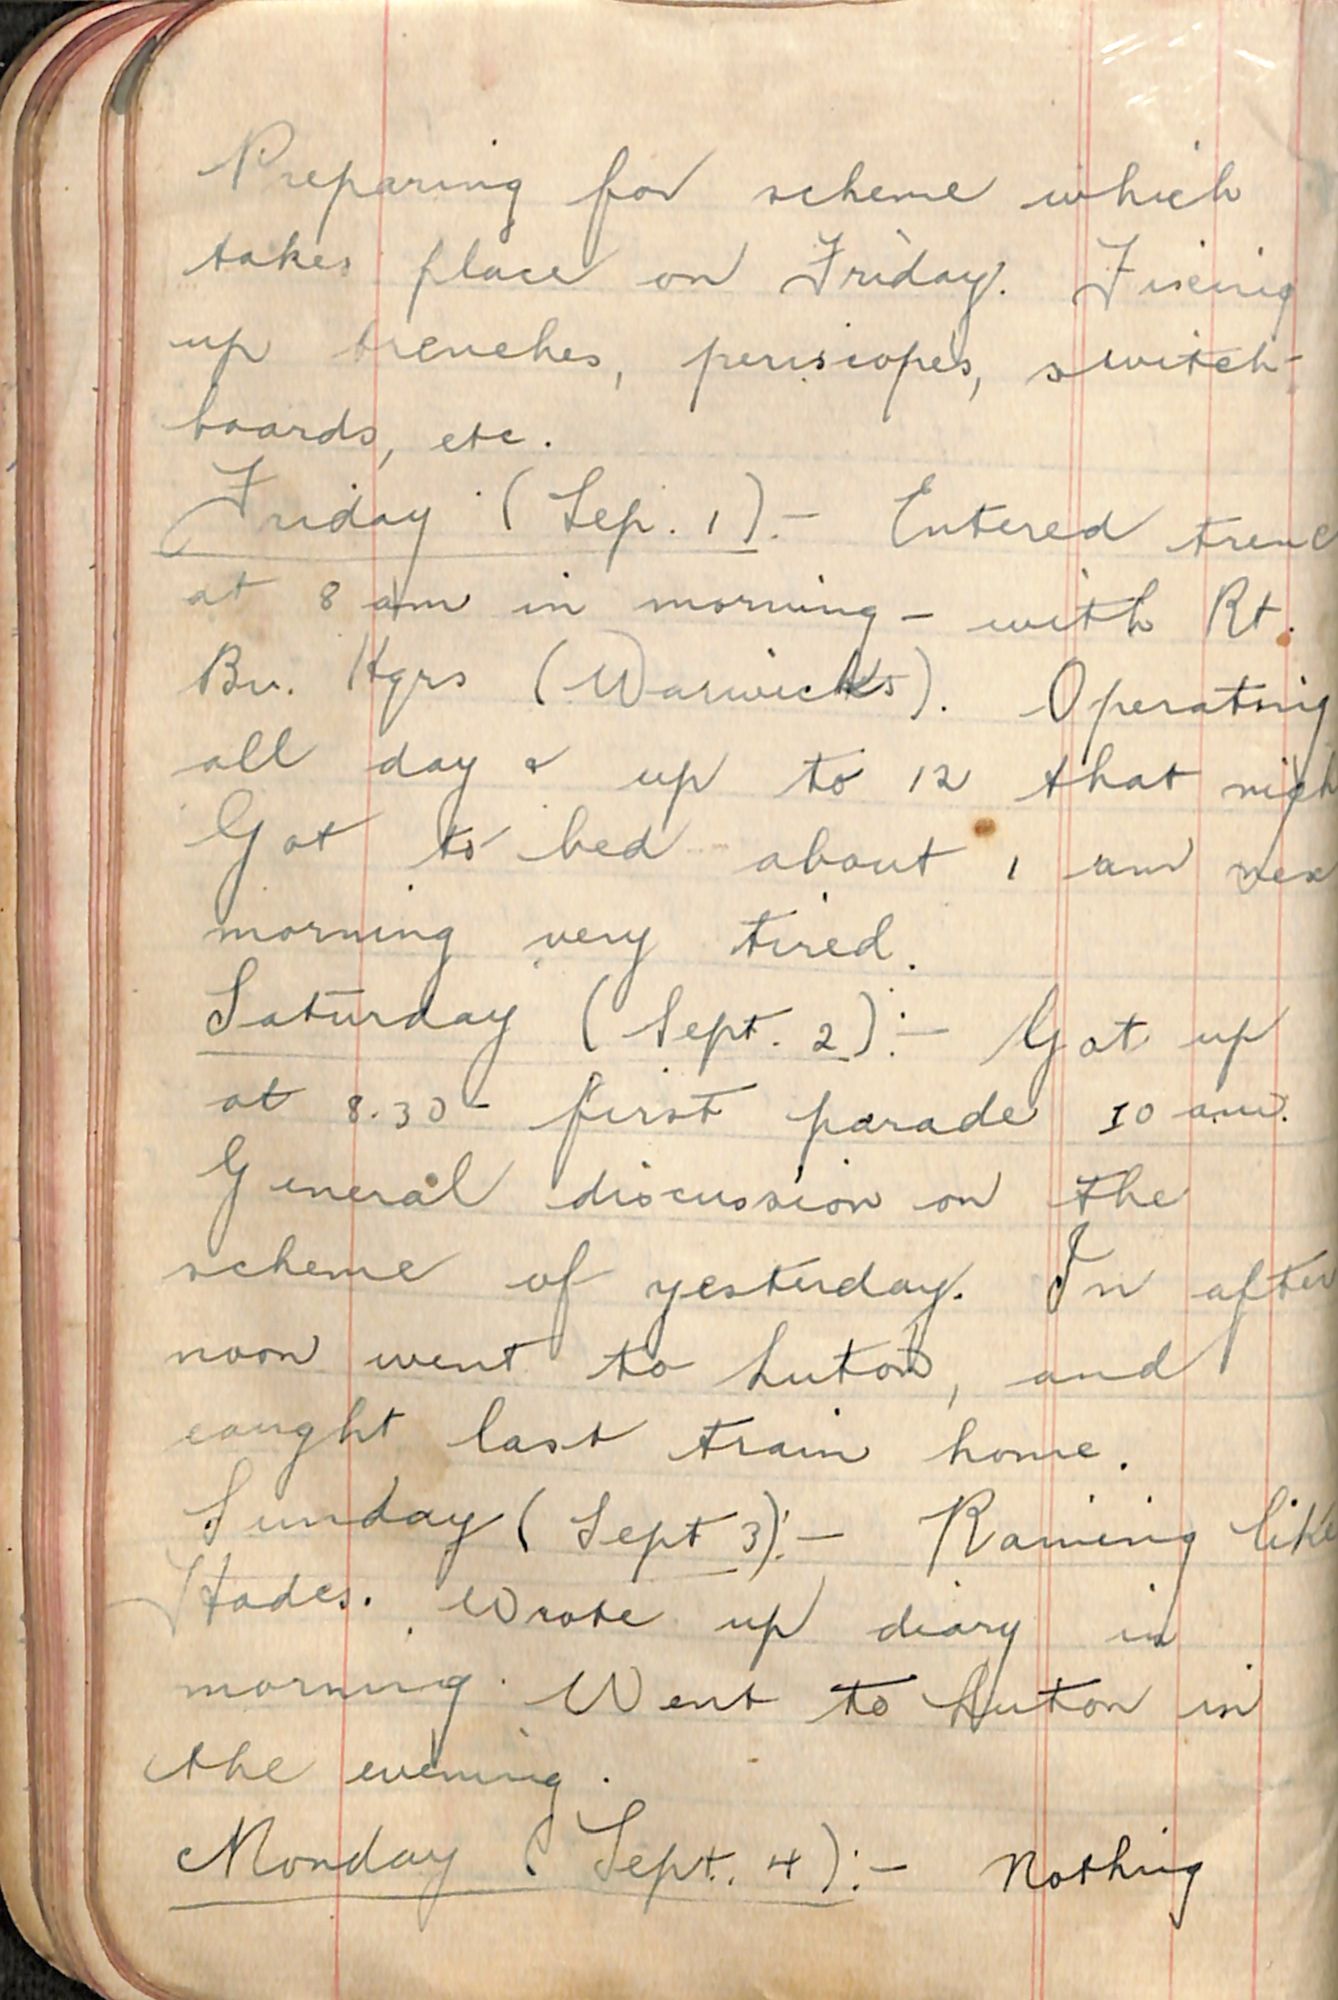 Preparing for scheme which
takes place on Friday. Fixing
up trenches, periscopes, switch-
boards, etc.
Friday (Sep. 1):- Entered trenc
at 8 am in morning - with Rt.
Bn. Hqrs (Warwicks). Operating
all day & up to 12 that nigh
Got to bed about 1 am nex
morning very tired.
Saturday (Sept. 2):- Got up
at 8.30 - first parade 10 am.
General discussion on the
scheme of yesterday. In after
noon went to Luton, and
caught last train home.
Sunday (Sept 3):- Raining like
Hades. Wrote up diary in
morning. Went to Luton in
the evening.
Monday (Sept. 4):- Nothing